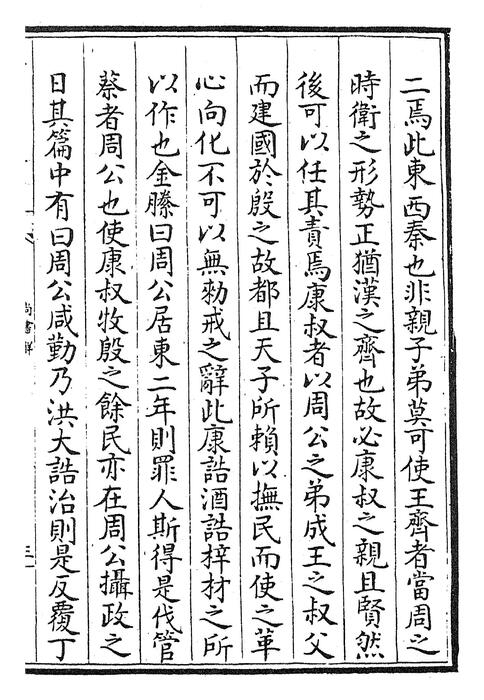 二焉此東西秦也非親子弟莫可使王齊者當周之
時衛之形勢正猶漢之齊也故必康叔之親且賢然
後可以任其責焉康叔者以周公之弟成王之叔父
而建國於殷之故都且天子所賴以撫民而使之革
心向化不可以無勑戒之辭此康誥酒誥梓材之所
以作也金縢曰周公居東二年則罪人斯得是伐管
蔡者周公也使康叔牧殷之餘民亦在周公攝政之
日其篇中有曰周公咸勤乃洪大誥治則是反覆丁
尚書